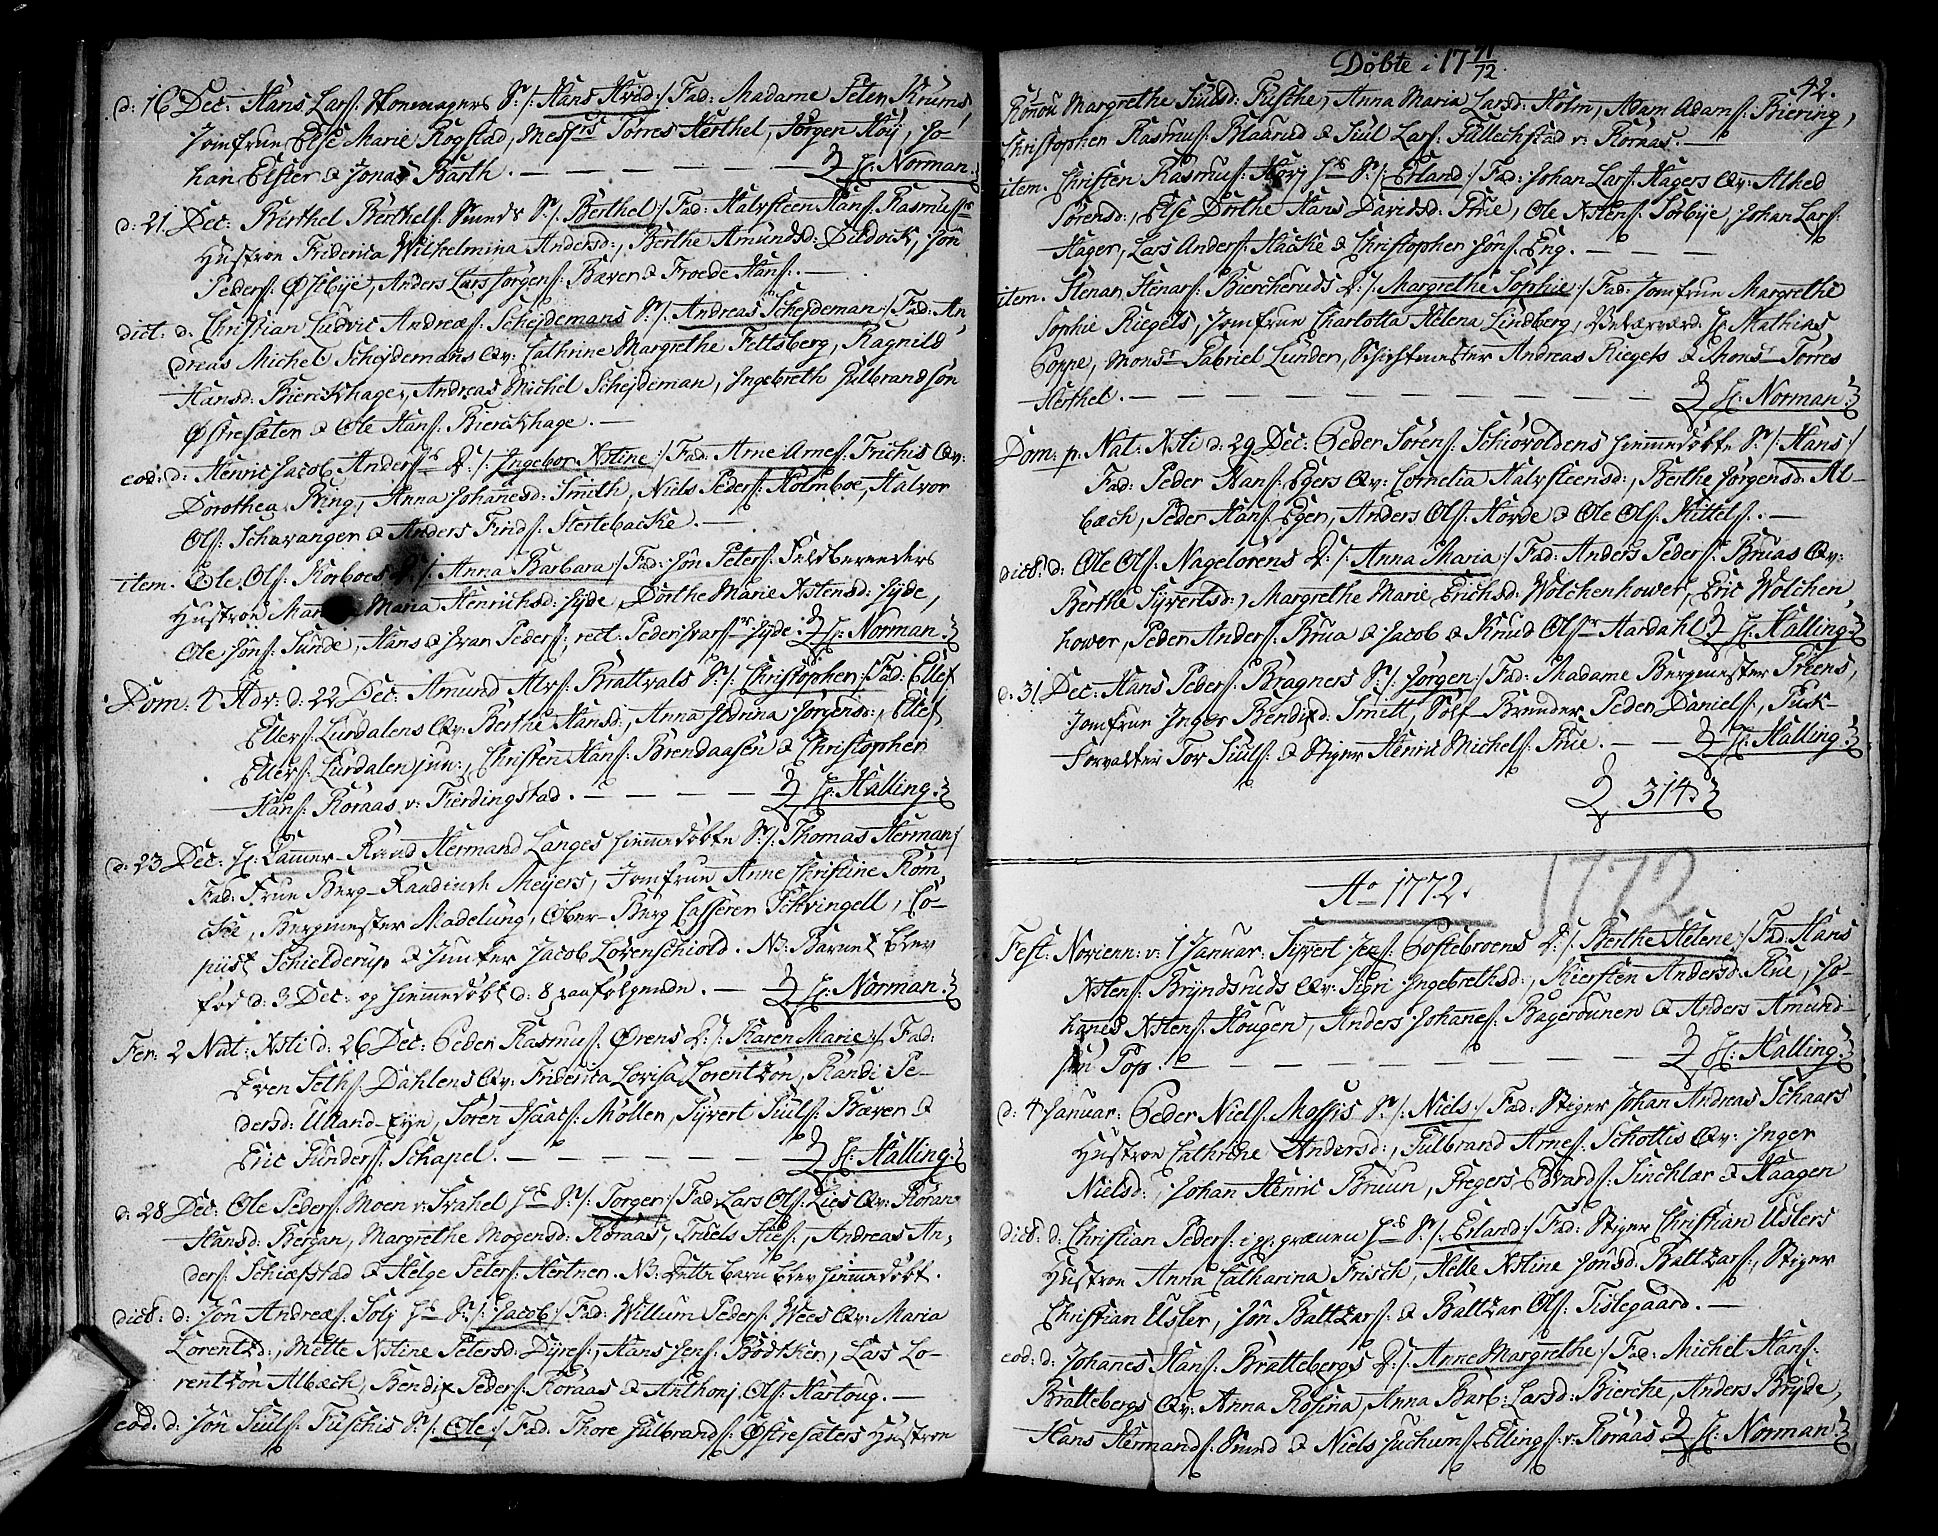 d: 16 Dec: Hans Lars: Skomagers S:/: Hans Hvid :/ Fad: Madame Peter Krums,
Jomfrue Else Marie Rogstad, Messrs Torres Herthel, Jørgen Koÿ, Jo-
han Elster & Jonas Barth. — — — — H: Norman.
d: 21 Dec: Berthel Berthels: Sunds S:/: Berthel :/ Fad: Halvsteen Hans: Rasmuss:
Hustroe Friderica Wilhelmina Andersd:, Berthe Amundsd: Dildvick, Jon
Peders: Østbÿe, Anders Lars Jørgens: Bæver & Froede Hans: —
dict: d: Christian Ludvic Andreæs: Schejdemans S:/: Andreas Schejdeman :/ Fad: An,
dreas Michel Schejdemans Qv: Cathrine Margrethe Feltsberg, Ragnild
Hansd: Bierckhager, Andreas Michel Schejdeman, Ingebreth Gulbrandsøn
Østresæter & Ole Hans: Bierckhage. —
eod: d: Henric Jacob Anders: D:/: Ingebor Xstine :/ Fad: Arne Arnes: Frichis Qv:
Dorothea Ring, Anna Johanesd: Smith, Niels Peders: Holmboe, Halvor
Ols: Schavanger & Anders Finds: Stertebacke. —
item. Ole Ols: Korboes D:/: Anna Barbara :/ Fad: Jon Peters: Feldberreders
Hustroe Maria Henrichsd: Hÿde, Dorthe Marie Xstensd: Hÿde,
Ole Jons: Sunde, Hans & Ivar Peders:, rect. Peder Ivars: Hÿde. H: Norman.
Dom: 4 Adv: d: 22 Dec: Amund Alvs: Brattvals S:/: Christopher :/ Fad: Ellef
Ellevs: Lurdalens Qv: Berthe Hansd:, Anna Jedrina Jørgensd:, Ellef
Ellefs: Lurdalen jun:, Christen Hans: Brendaasen & Christopher
Hans: Roraas v: Fierdingstad. — — — — H: Halling.
d: 23 Dec: H: Cammer-Raad Hermand Langes hiemmedøbte S:/: Thomas Herman :/
Fad: Frue Berg-Raadinch Meÿers, Jomfrue Anne Christine Rom,
cke, Bergmester Madelung, Ober-Berg Casserer Schvingell, Co-
piist Schielderup & Junker Jacob Lovenschiold. NB: Barnet blev
fød d: 3 Dec: og hiemmedøbt d: 8 paafølgende. — H: Norman.
Fer: 2 Nat: Xsti d: 26 Dec: Peder Rasmus: Ørens D:/: Karen Marie :/ Fad:
Even Seths: Dahlens Qv: Friderica Lovisa Lorentzøn, Randi Pe-
dersd: Ulland-Eÿe, Søren Isaacs: Möller, Sÿvert Siuls: Bæver &
Eric Gunders: Schapel. — — — — H: Halling.
d: 28 Dec: Ole Peders: Moen v: Svahel S:/: Torger :/ Fad: Lars Ols: Lies Qv: Goran
Hansd: Bergan, Margrethe Mogensd: Roraas, Truels Kies:, Andreas An,
ders: Schiæfstad & Helge Peters: Hertner. NB: Dette barn blev hiemmedøbt.
dict: d: Jon Andreæs: Solj S:/: Jacob :/ Fad: Willum Peders: Wees Qv: Maria
Lorentzd:, Mette Xstine Petersd: Dÿres:, Hans Jens: Bödtker, Lars Lo-
rentzön Albæch, Bendix Peders: Roraas & Anthonj Ols: Hartoug. —
eod: d: Jon Siuls: Fuschis S:/: Ole :/ Fad: Thore Gulbrands: Østresæters Hustroe
Döbte i 17 71/72
42.
Ronou Margrethe Siulsd: Fusche, Anna Maria Larsd: Holm, Adam Adams: Biering,
Christopher Rasmus: Blaarud & Siul Lars: Tillechstad v: Roraas. —
item. Christen Rasmus: Horj S:/: Erland :/ Fad: Johan Lars: Hagers Qv: Alhed
Sorensd:, Else Dorthe Hans Davidsd: Frue, Ole Xstens: Sorbÿe, Johan Lars:
Hager, Lars Anders: Hacke & Christopher Jons: Eng. — — —
item. Stenar Stenars: Biercheruds D:/: Margrethe Sophie :/ Fad: Jomfrue Margrethe
Sophie Riegels, Jomfrue Charlotta Helena Lindberg, H: Mathias
Coppe, Monsr Gabriel Lunder, Schichtmester Andreas Riegels & Monsr Torres
Herthel. — — — — — — H: Norman.
Dom: p. Nat: Xsti d: 29 Dec: Peder Sorens: Schiovoldens hiemmedøbte S:/: Hans :/
Fad: Peder Hans: Egers Qv: Cornelia Halvsteensd:, Berthe Jørgensd: Al-
bæch, Peder Hans: Eger, Anders Ols: Horde & Ole Ols: Kittels: —
dict: d: Ole Ols: Nagelorens D:/: Anna Maria :/ Fad: Anders Peders: Bruas Qv:
Berthe Sÿvertsd:, Margrethe Marie Erichsd: Wolchenhower, Eric Wolchen,
hower, Peder Anders: Brua & Jacob & Knud Ols: Aardahl. H: Halling.
d: 31 Dec: Hans Peders: Bragners S:/: Jørgen :/ Fad: Madame Bergmester Priens,
Jomfrue Inger Bendixd: Smitt, Sölf-Brender Peder Daniels:, Pusk-
Forvalter Tor Siuls: & Stiger Henric Michels: Frue. — — H: Halling.
314.
Ao 1772.
1772
Fest: Novi enn: v: 1 Januar: Sÿvert Jens: Coltebroens D:/: Berthe Helene :/ Fad: Hans
Xstens: Brÿndsruds Qv: Sigri Ingebrethsd:, Kiersten Andersd: Rue, Jo-
hanes Xstens: Hougen, Anders Johanes: Bagerounen & Anders Amund-
sen Pop. — — — — — — H: Halling.
d: 4 Januar: Peder Niels: Mossis S:/: Niels :/ Fad: Stiger Johan Andreas Schaars
Hustroe Cathrine Andersd:, Gulbrand Arnes: Schottis Qv: Inger
Nielsd:, Johan Henric Bruun, Fregers Edvards: Sincklar & Haagen
dict: d: Christian Peders: i gr:græuen S:/: Erland :/ Fad: Stiger Christian Uslers
Hustroe Anna Catharina Frisch, Helle Xstine Jonsd: Baltzars:, Stiger
Christian Usler, Jon Baltzars: & Baltzar Ols: Tislegaard. —
eod: d: Johanes Hans: Brattebergs D:/: Anne Margrethe :/ Fad: Michel Hans:
Brattebergs Qv: Anna Rosina, Anna Barb: Larsd: Bierche, Anders Brÿde,
Hans Hermands: Sund & Niels Juchums: Ellings: v: Roraas H: Norman.